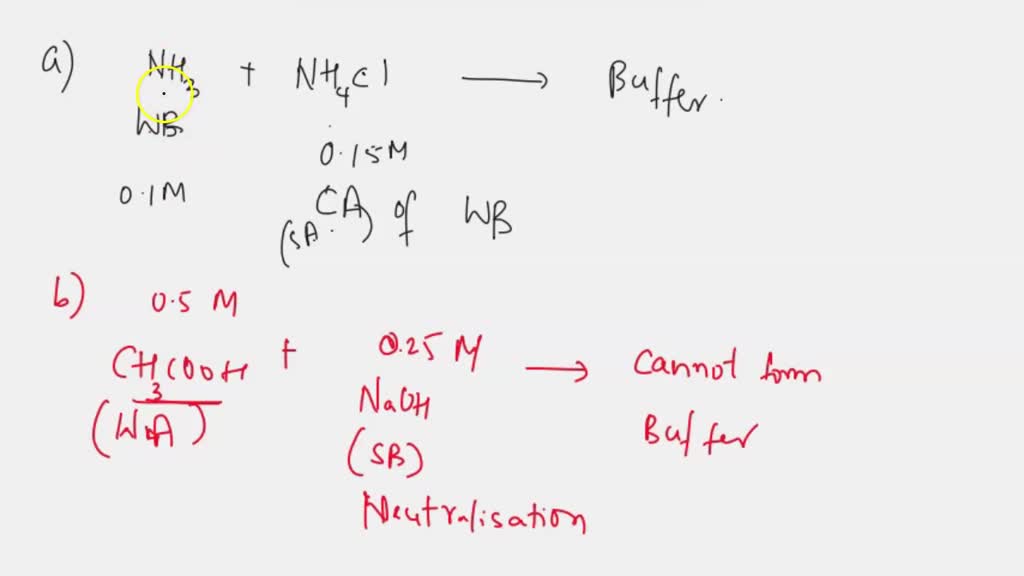 a) NH3 + NH4Cl → Buffer.
WB
0.15M
0.1M
(SA.) CA of WB
b) 0.5 M
CH3COOH + 0.25 M → Cannot form
(WA) NaOH Buffer
(SB)
Neutralisation